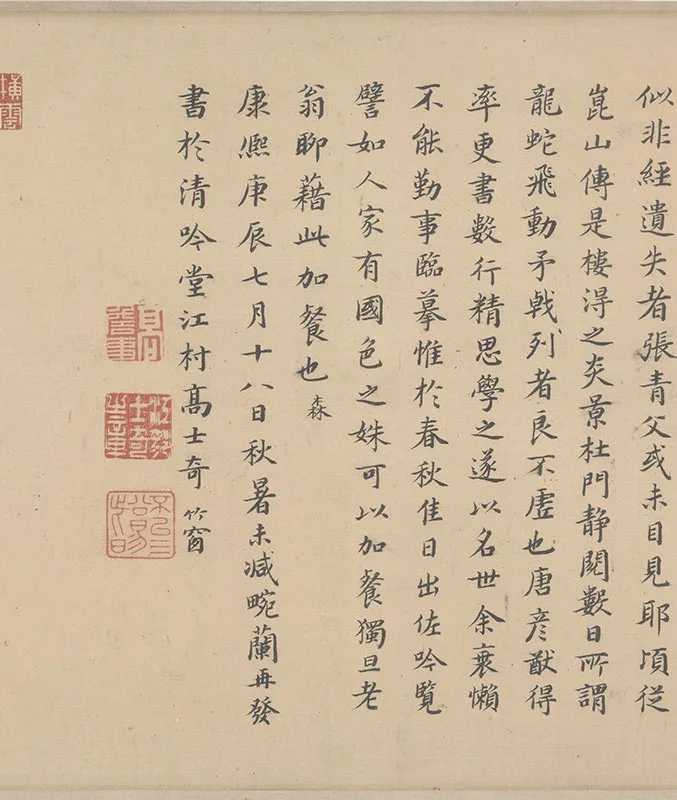 似非經遺失者張青父或未目見耶頃從
崑山傳是樓淂之炎景杜門静閱數日所謂
龍蛇飛動矛戟列者良不虗也唐彦猷得
率更書數行精思學之遂以名世余衰懶
不能勤事臨摹惟於春秋佳日出佐吟覽
譬如人家有國色之姝可以加餐獨旦老
翁聊藉此加餐也 森
康熈庚辰七月十八日秋暑未减畹蘭再發
書於清吟堂江村高士奇 竹窗
橫雲